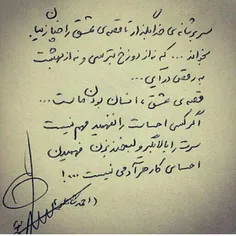 سر بر شانه ی خدا بگذار تا قصه ی عشق را چنان زیبا
بخواند ... که نه از دوزخ بترسی و نه از بهشت
به رقص درآیی ...
قصه ی عشق ، انسان بودن ماست ...
اگر کسی احساست را نفهمید مهم نیست
سرت را بالا بگیر و لبخند بزن فهمیدن
احساس کار هر آدمی نیست ... !